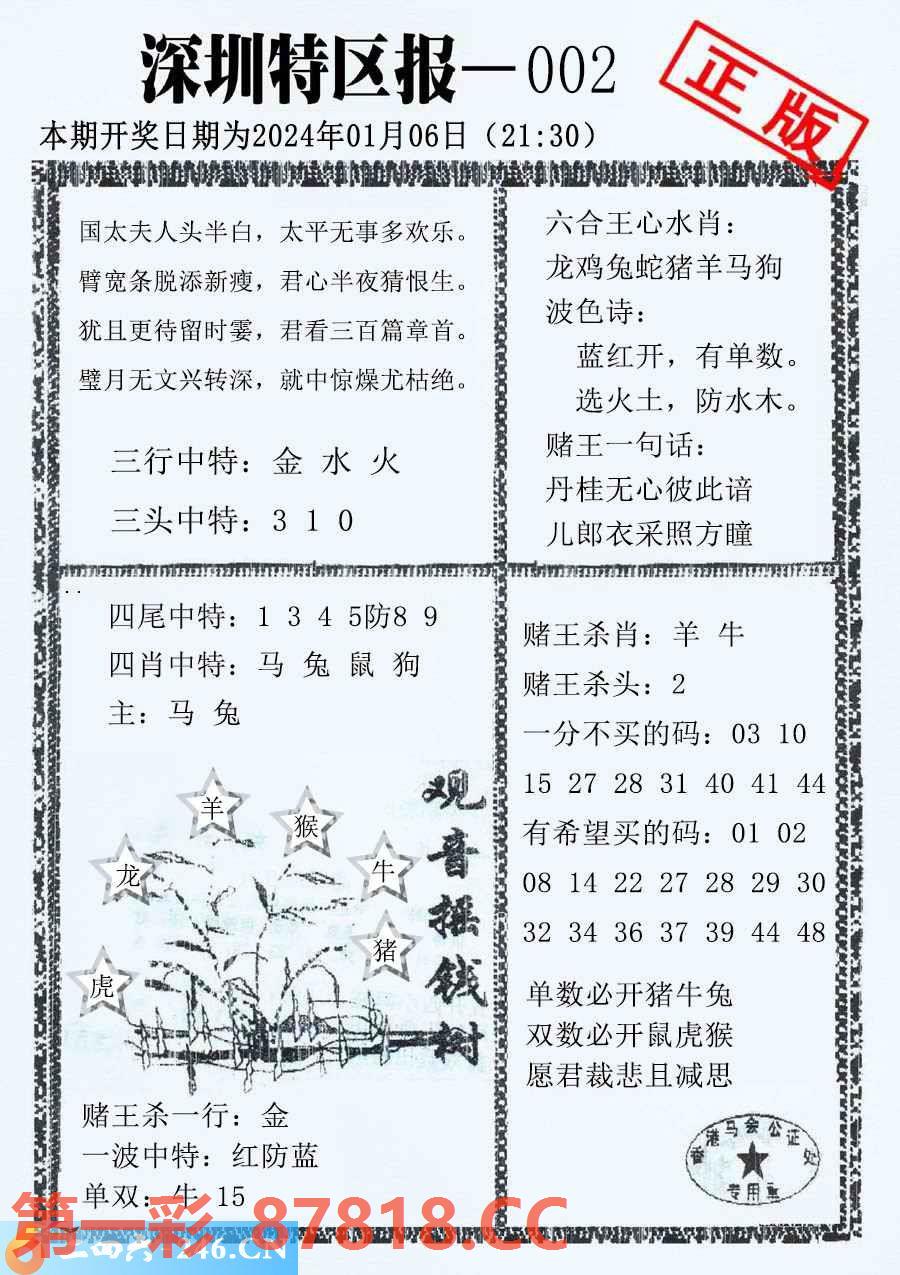 深圳特区报—002
正版
本期开奖日期为2024年01月06日（21:30）
国太夫人头半白，太平无事多欢乐。
臂宽条脱添新瘦，君心半夜猜恨生。
犹且更待留时霎，君看三百篇章首。
璧月无文兴转深，就中惊燥尤枯绝。
三行中特：金 水 火
三头中特：3 1 0
六合王心水肖：
龙鸡兔蛇猪羊马狗
波色诗：
蓝红开，有单数。
选火土，防水木。
赌王一句话：
丹桂无心彼此谙
儿郎衣采照方瞳
四尾中特：1 3 4 5防8 9
四肖中特：马 兔 鼠 狗
主：马 兔
观音摇钱树
羊
猴
龙
牛
猪
虎
赌王杀一行：金
一波中特：红防蓝
单双：牛 15
赌王杀肖：羊 牛
赌王杀头：2
一分不买的码：03 10
15 27 28 31 40 41 44
有希望买的码：01 02
08 14 22 27 28 29 30
32 34 36 37 39 44 48
单数必开猪牛兔
双数必开鼠虎猴
愿君裁悲且减思
香港马会公证处
专用章
第一彩 87818.CC
246.CN